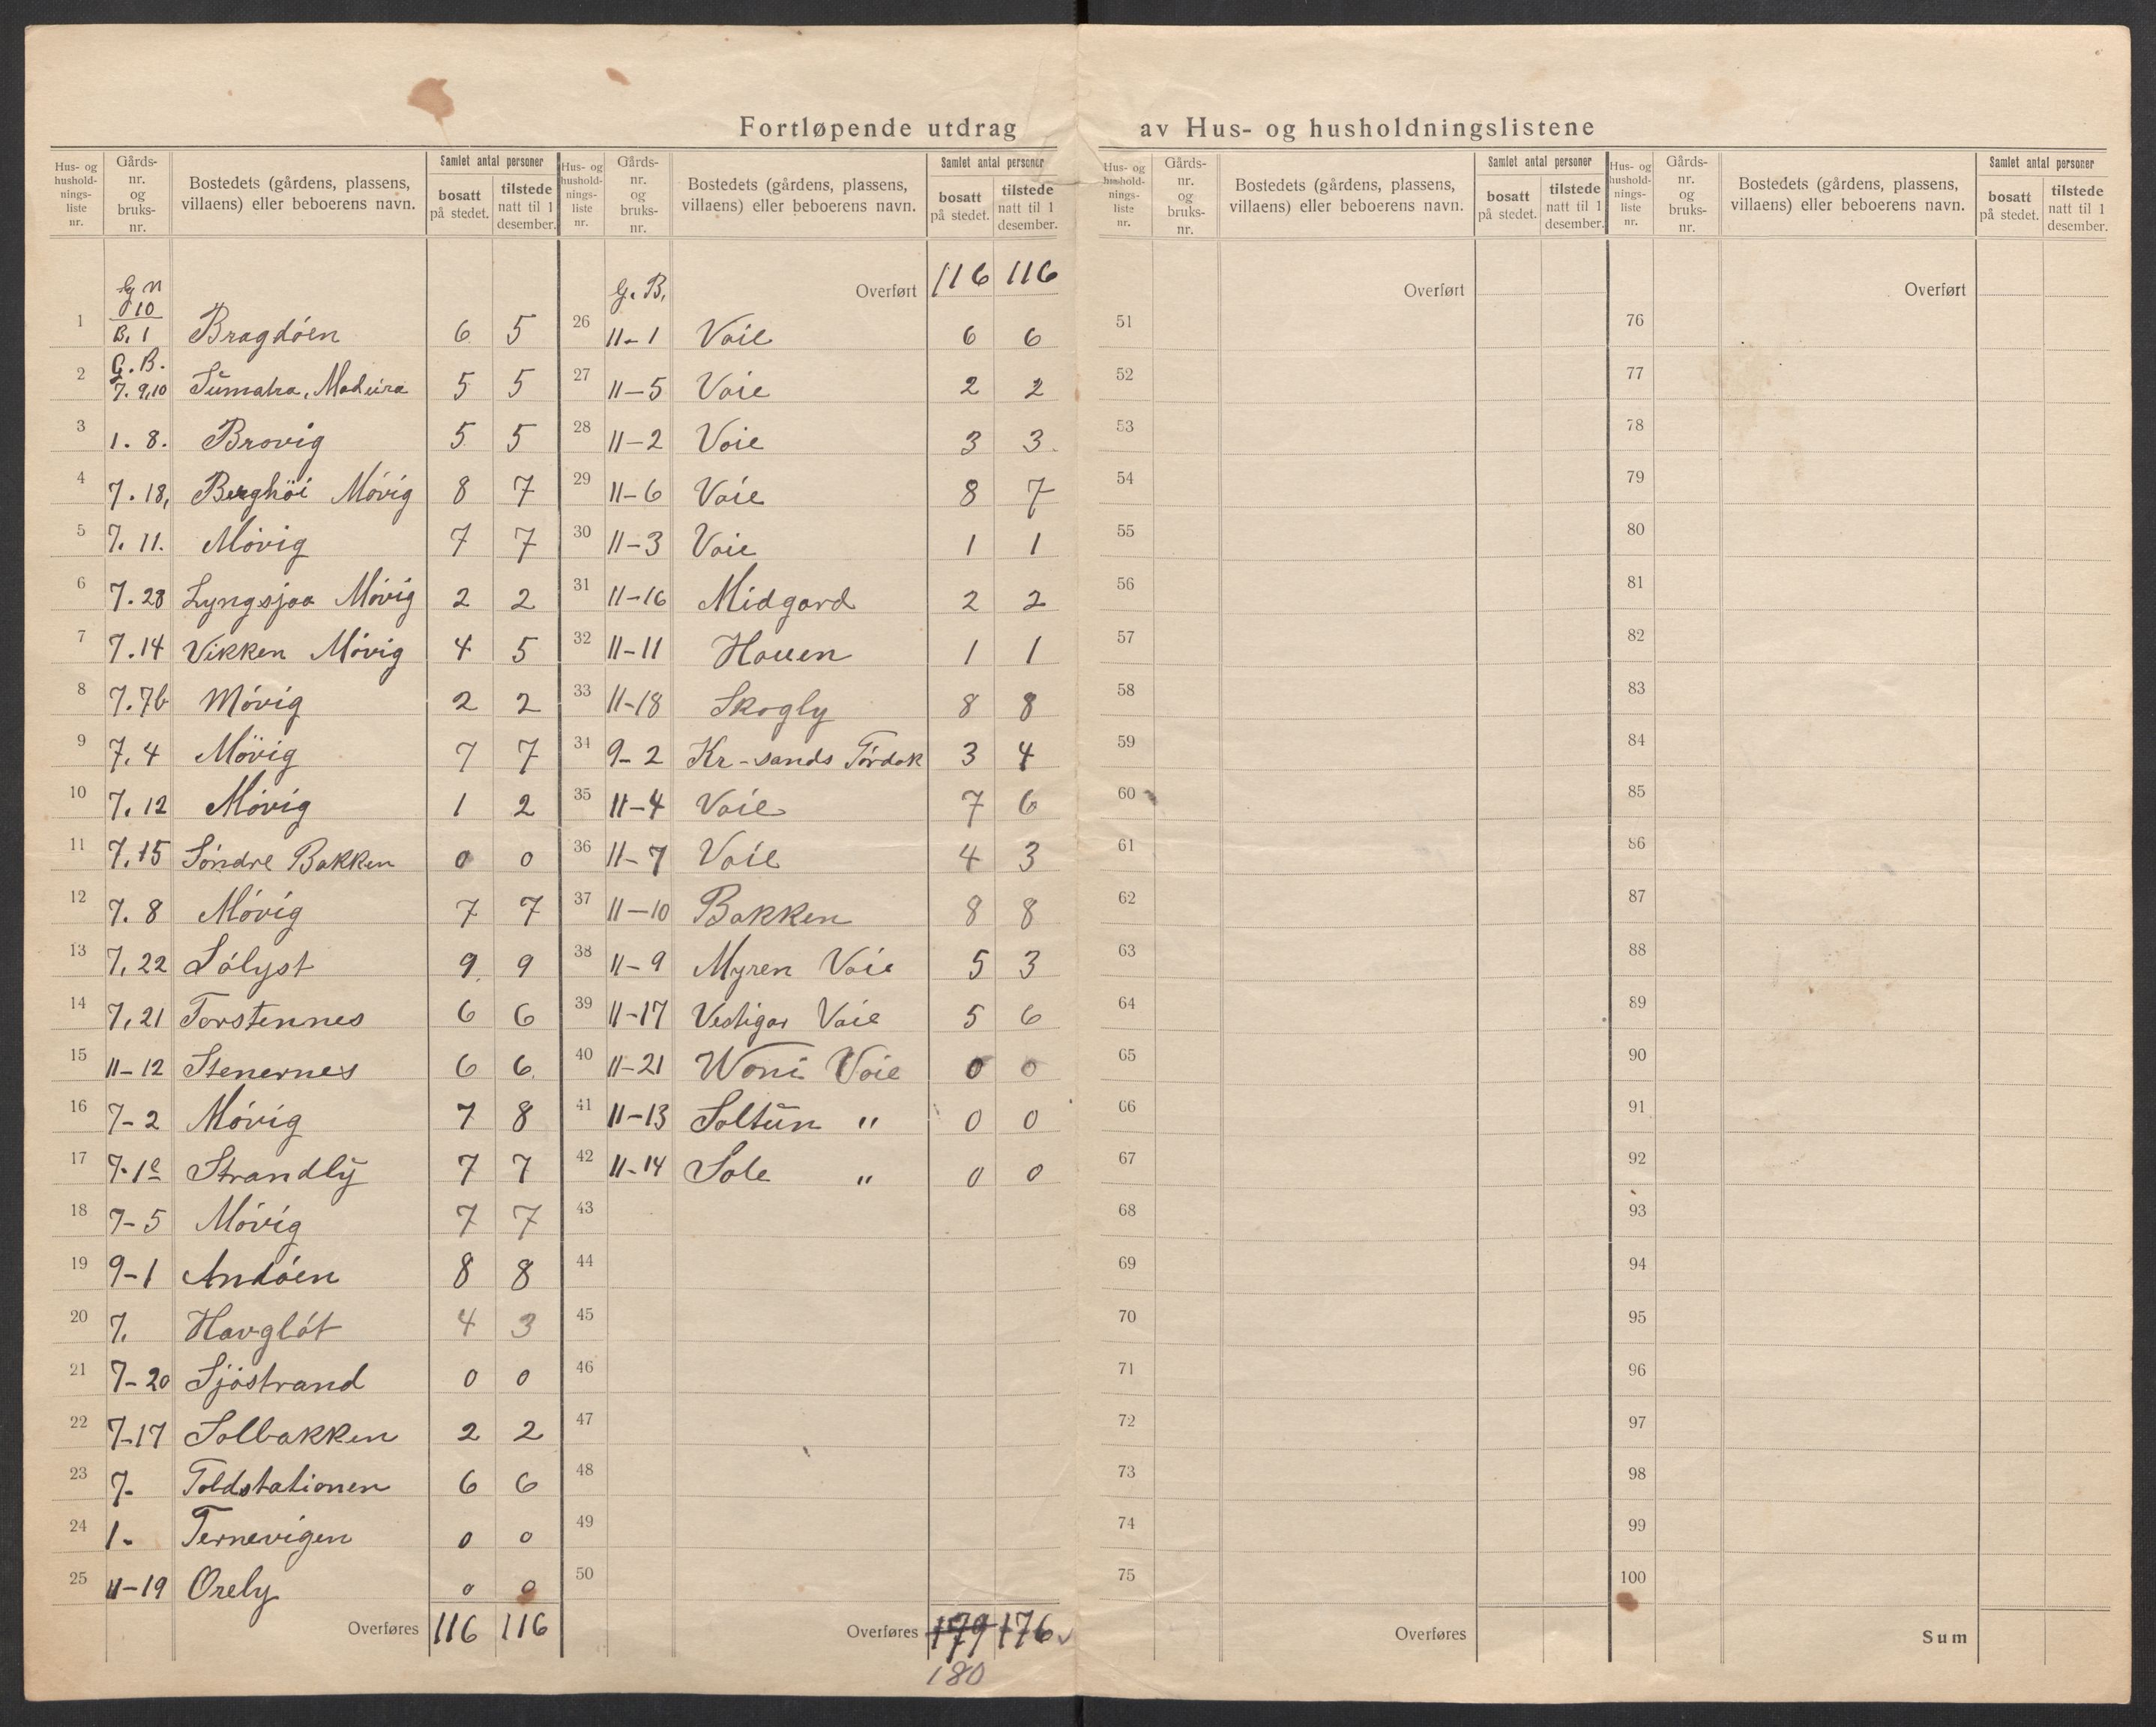 Fortløpende utdrag av Hus- og husholdningslistene
Hus- og husholdningsliste nr. | Gårds-nr. og bruks-nr. | Bostedets (gårdens, plassens, villaens) eller beboerens navn. | Samlet antal personer | bosatt på stedet. | tilstede natt til 1 desember.
G n 10
1 | B. 1 | Bragdöen | 6 | 5
G. B.
2 | 7. 9,10 | Sumatra, Madeira | 5 | 5
3 | 1. 8. | Brovig | 5 | 5
4 | 7. 18, | Berghöi Mövig | 8 | 7
5 | 7. 11. | Mövig | 7 | 7
6 | 7. 28 | Lyngsjaa Mövig | 2 | 2
7 | 7. 14 | Vikken Mövig | 4 | 5
8 | 7. 7b | Mövig | 2 | 2
9 | 7. 4 | Mövig | 7 | 7
10 | 7. 12 | Mövig | 1 | 2
11 | 7. 15 | Söndre Bakken | 0 | 0
12 | 7. 8 | Mövig | 7 | 7
13 | 7, 22 | Sólyst | 9 | 9
14 | 7, 21 | Torstennes | 6 | 6
15 | 11-12 | Stenernes | 6 | 6
16 | 7-2 | Mövig | 7 | 8
17 | 7-1e | Strandly | 7 | 7
18 | 7-5 | Mövig | 7 | 7
19 | 9-1 | Andöen | 8 | 8
20 | 7. | Havglöt | 4 | 3
21 | 7-20 | Sjöstrand | 0 | 0
22 | 7-17 | Solbakken | 2 | 2
23 | 7- | Toldstationen | 6 | 6
24 | 1- | Ternevigen | 0 | 0
25 | 11-19 | Orely | 0 | 0
Overføres | 116 | 116
Hus- og husholdningsliste nr. | Gårds-nr. og bruks-nr. | Bostedets (gårdens, plassens, villaens) eller beboerens navn. | Samlet antal personer | bosatt på stedet. | tilstede natt til 1 desember.
G. B. | Overført | 116 | 116
26 | 11-1 | Voie | 6 | 6
27 | 11-5 | Voie | 2 | 2
28 | 11-2 | Voie | 3 | 3
29 | 11-6 | Voie | 8 | 7
30 | 11-3 | Voie | 1 | 1
31 | 11-16 | Midgard | 2 | 2
32 | 11-11 | Hauen | 1 | 1
33 | 11-18 | Skogly | 8 | 8
34 | 9-2 | Kr-sands Tördok | 3 | 4
35 | 11-4 | Voie | 7 | 6
36 | 11-7 | Voie | 4 | 3
37 | 11-10 | Bakken | 8 | 8
38 | 11-9 | Myren Voie | 5 | 3
39 | 11-17 | Vestigar Voie | 5 | 6
40 | 11-21 | Woni Voie | 0 | 0
41 | 11-13 | Soltun " | 0 | 0
42 | 11-14 | Sole " | 0 | 0
43
44
45
46
47
48
49
50
Overføres | 179 | 176
180
Hus- og husholdningsliste nr. | Gårds-nr. og bruks-nr. | Bostedets (gårdens, plassens, villaens) eller beboerens navn. | Samlet antal personer | bosatt på stedet. | tilstede natt til 1 desember.
Overført
51
52
53
54
55
56
57
58
59
60
61
62
63
64
65
66
67
68
69
70
71
72
73
74
75
Overføres
Hus- og husholdningsliste nr. | Gårds-nr. og bruks-nr. | Bostedets (gårdens, plassens, villaens) eller beboerens navn. | Samlet antal personer | bosatt på stedet. | tilstede natt til 1 desember.
Overført
76
77
78
79
80
81
82
83
84
85
86
87
88
89
90
91
92
93
94
95
96
97
98
99
100
Sum